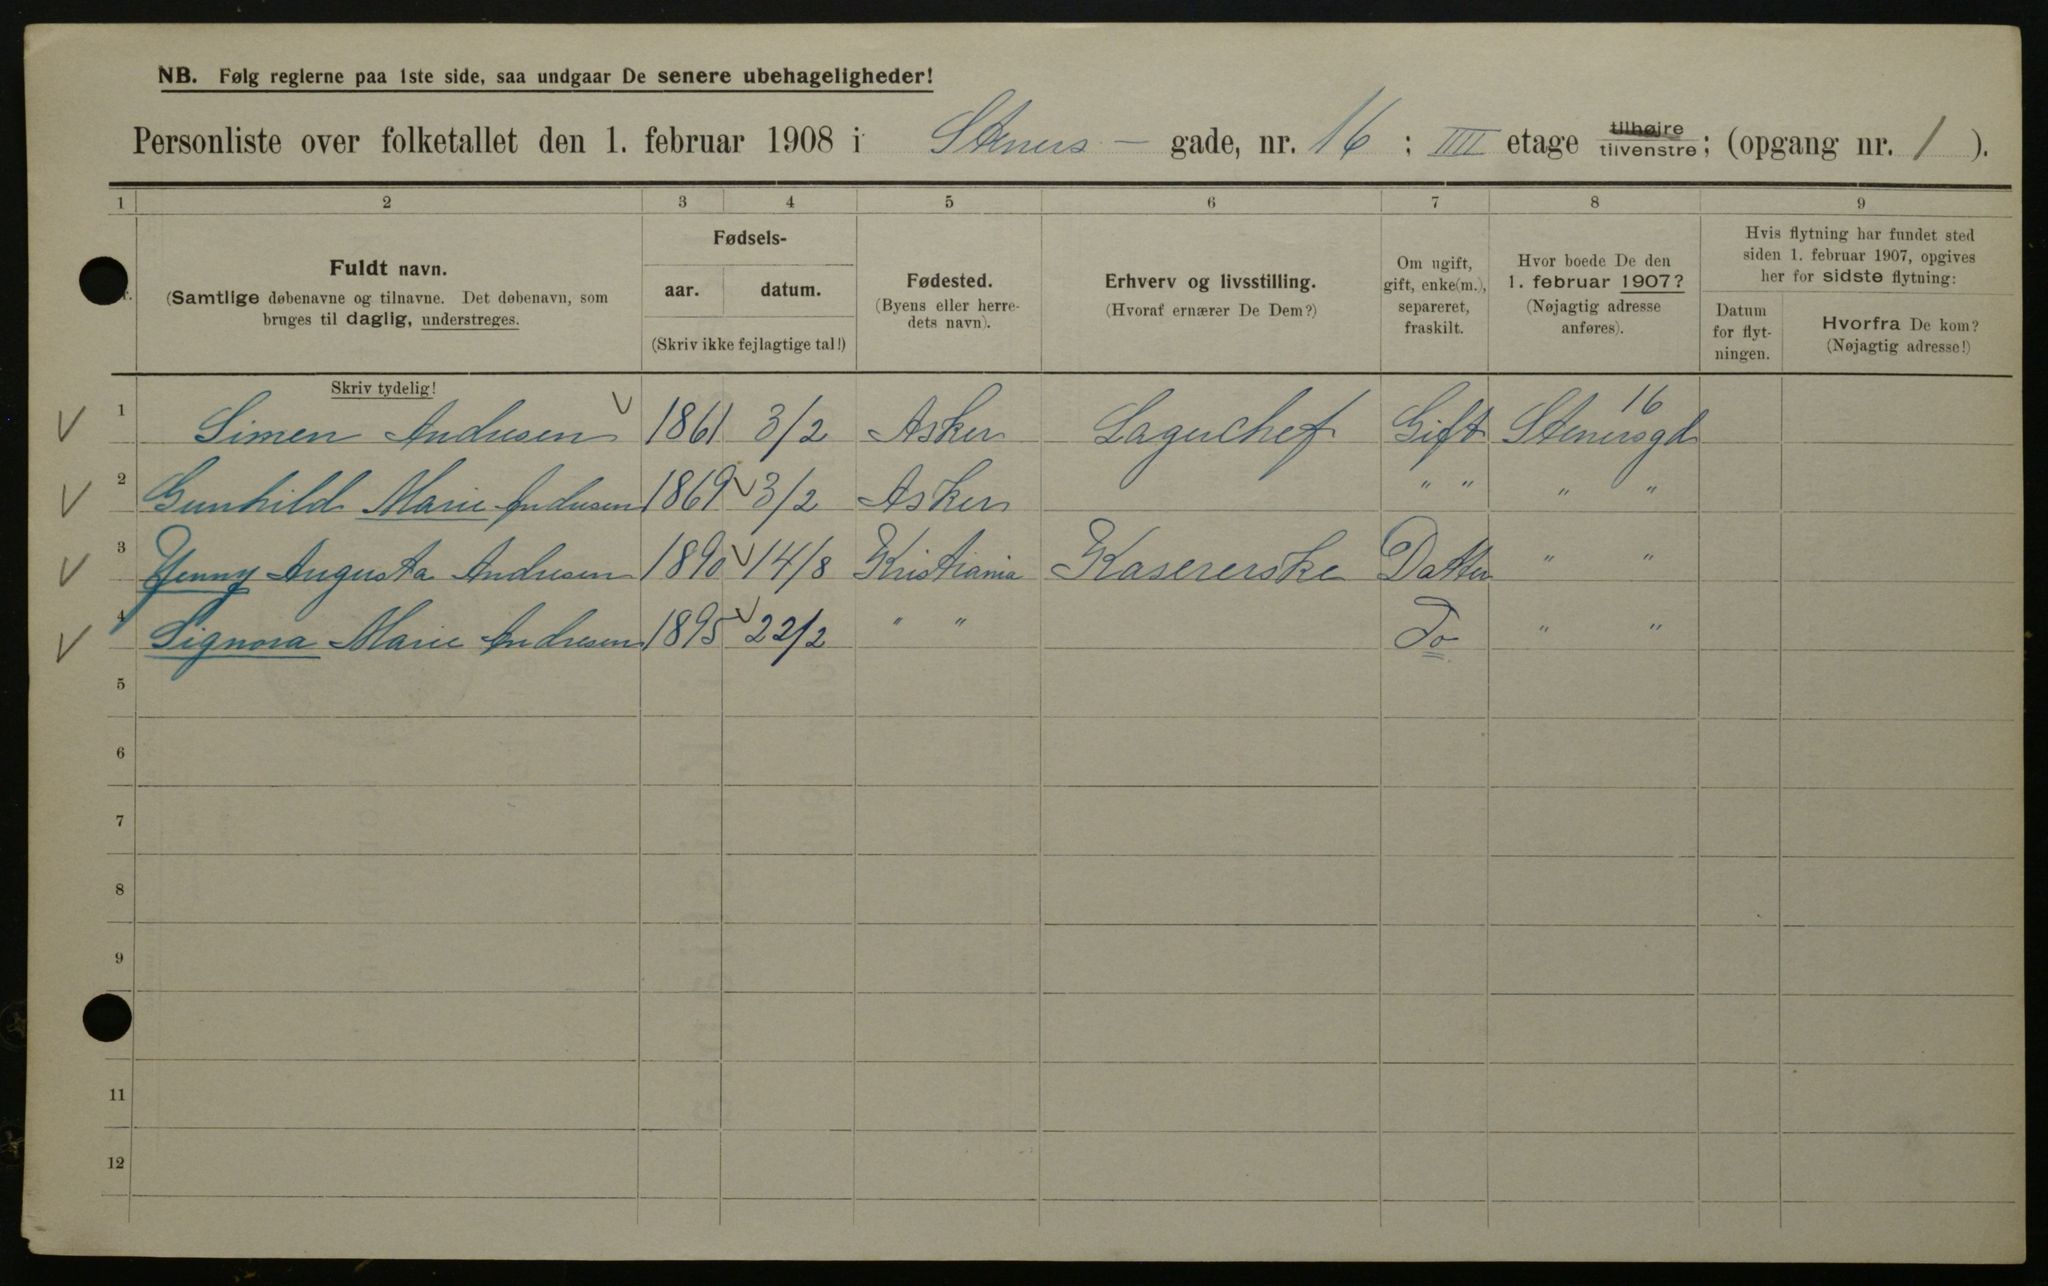 NB. Følg reglerne paa 1ste side, saa undgaar De senere ubehageligheder!
Personliste over folketallet den 1. februar 1908 i Steners — gade, nr. 16 ; IIII etage tilhøjre tilvenstre; (opgang nr. 1 ).
1 2 3 4 5 6 7 8 9
Fuldt navn.
(Samtlige døbenavne og tilnavne. Det døbenavn, som
bruges til daglig, understreges.
Skriv tydelig!
Fødsels-
aar. datum.
(Skriv ikke fejlagtige tal!)
Fødested.
(Byens eller herre-
dets navn).
Erhverv og livsstilling.
(Hvoraf ernærer De Dem?)
Om ugift,
gift, enke(m.),
separeret,
fraskilt.
Hvor boede De den
1. februar 1907?
(Nøjagtig adresse
anføres).
Hvis flytning har fundet sted
siden 1. februar 1907, opgives
her for sidste flytning:
Datum
for flyt-
ningen.
Hvorfra De kom?
(Nøjagtig adresse!)
1 Simen Andresen 1861 3/2 Asker Lagerchef Gift Stenersgd 16
2 Gunhild Marie Andresen 1869 3/2 Asker " " " "
3 Yenny Augusta Andresen 1890 14/8 Kristiania Kasererske Datter " "
4 Signora Marie Andresen 1895 22/2 " " Do " "
5
6
7
8
9
11
12